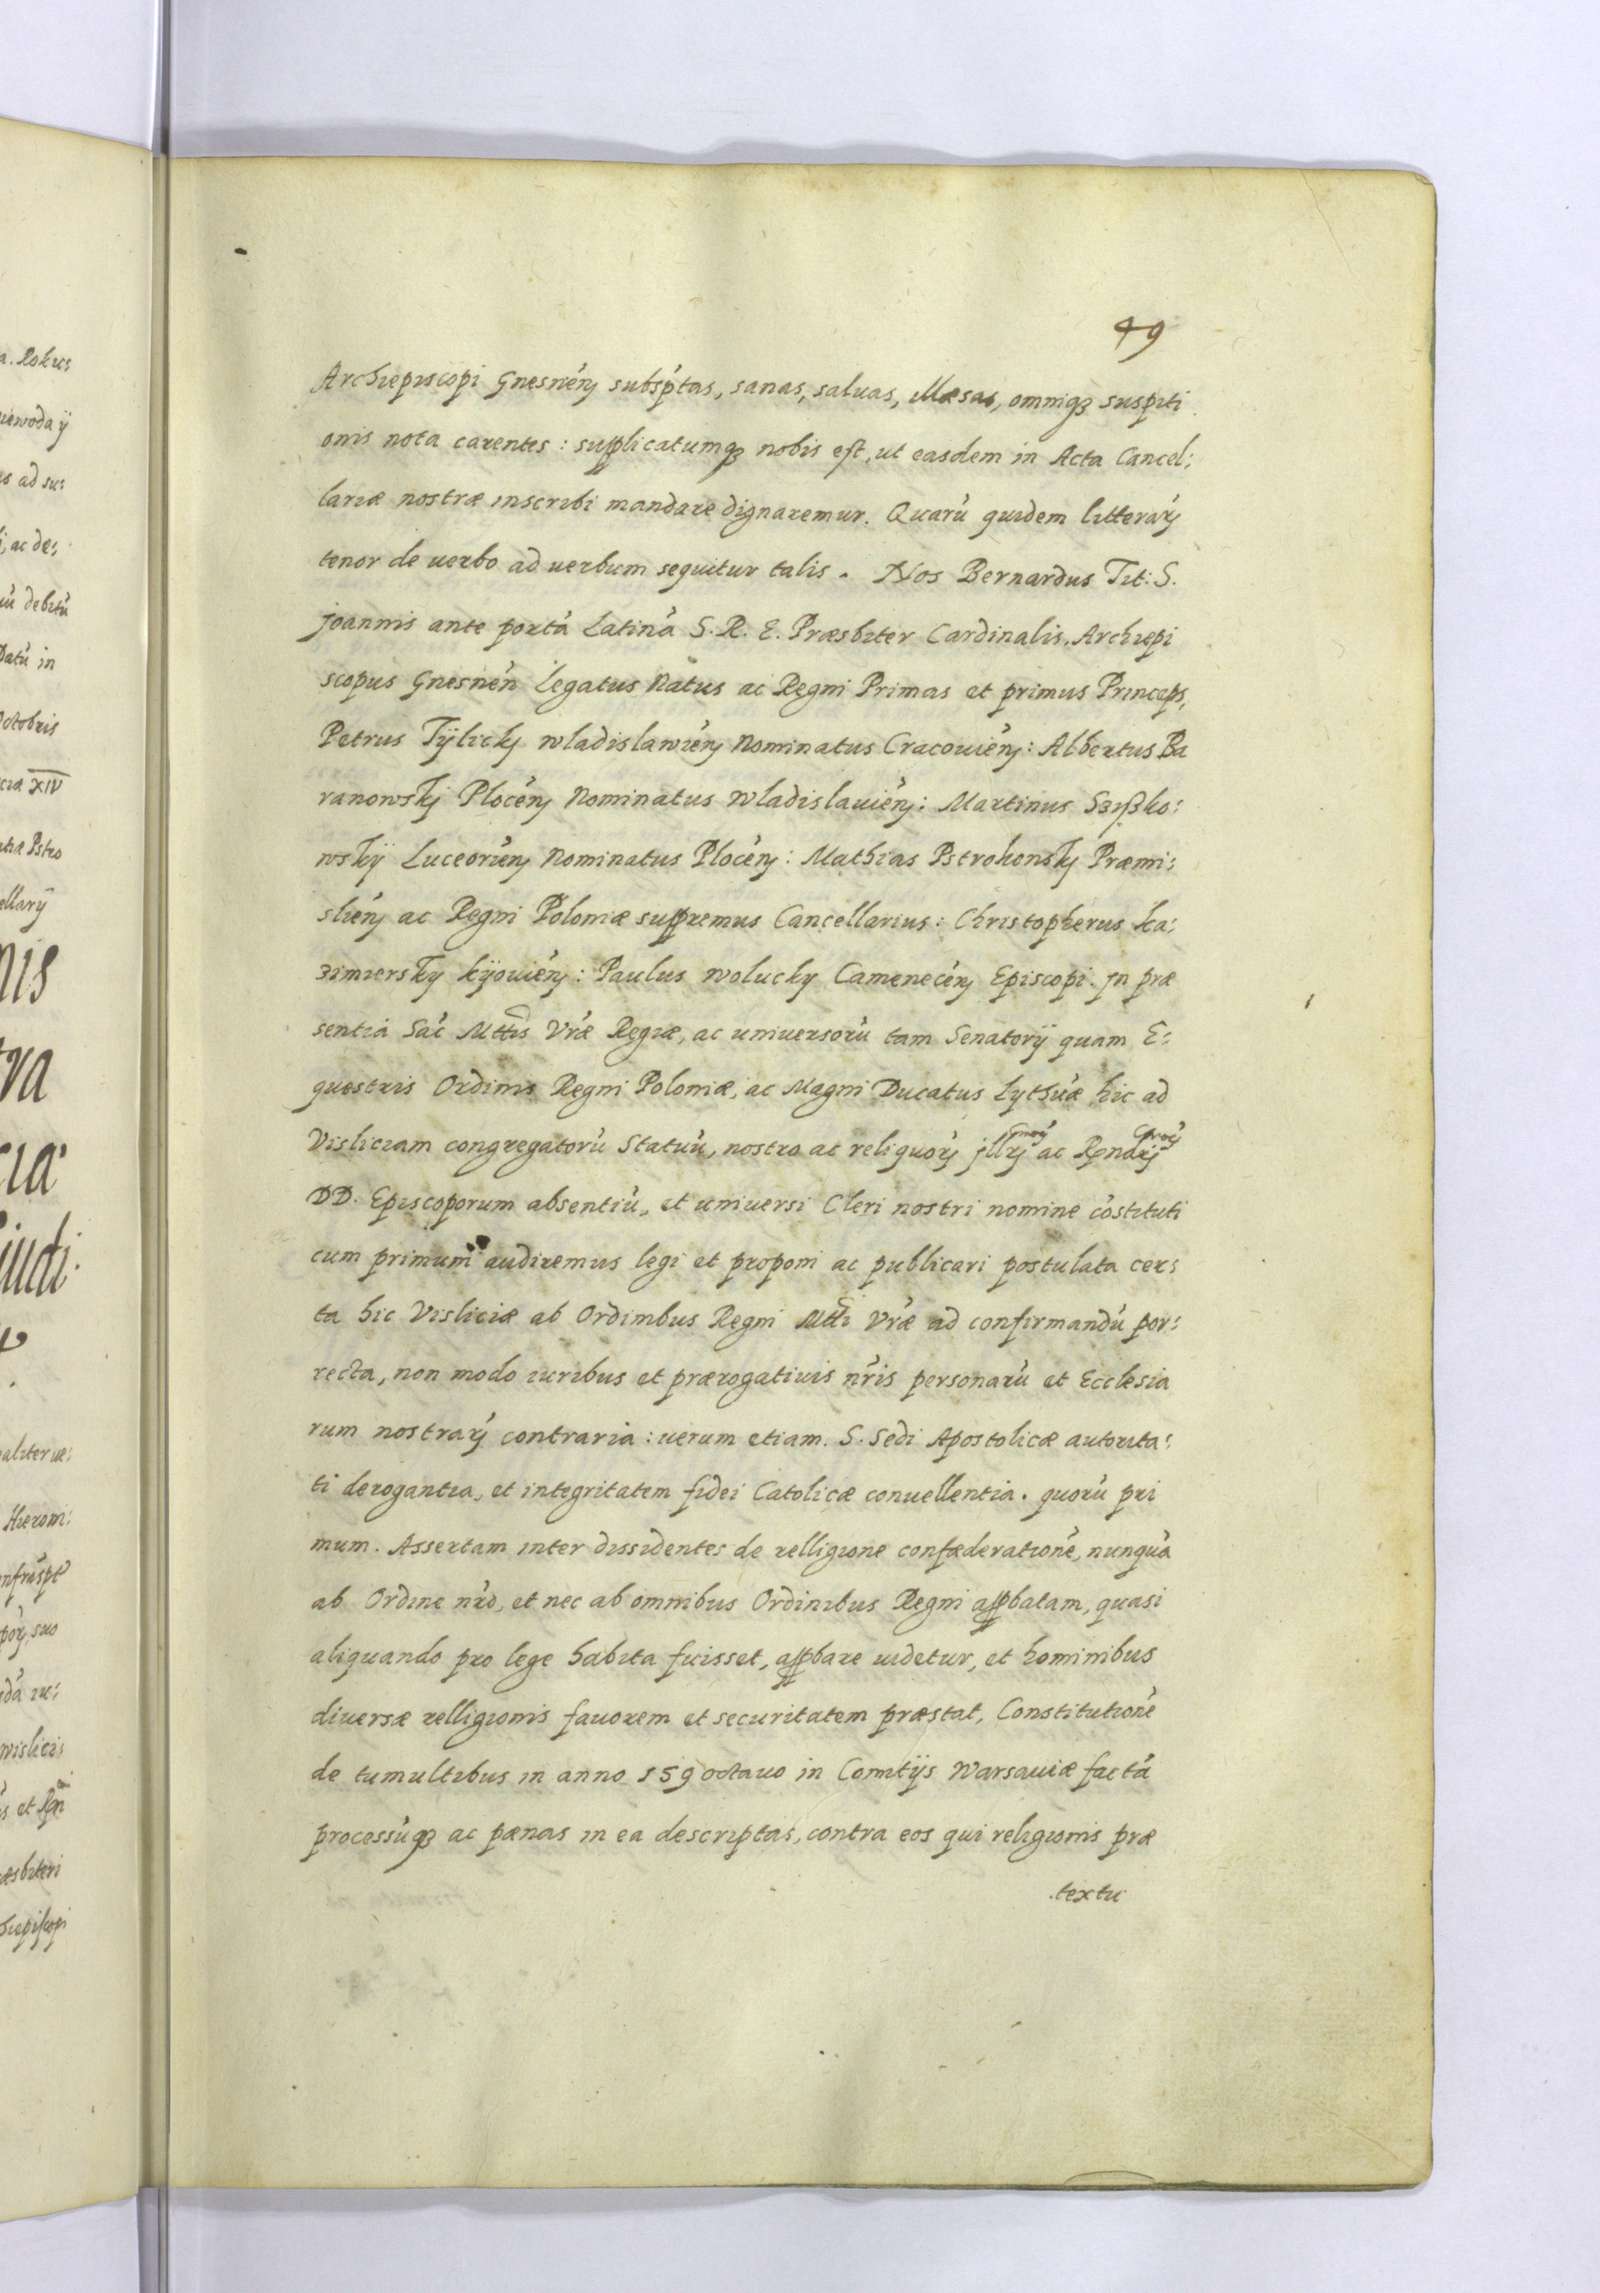 49
Archiepiscopi Gnesnen̄ subsp̄tas, sanas, saluas, illæsas, omniq₃ suspiti
onis nota carentes: supplicatumq₃ nobis est, ut easdem in Acta Cancel:
lariæ nostræ inscribi mandare dignaremur. Quarū quidem litterarꝫ
tenor de uerbo ad uerbum sequitur talis. Nos Bernardus Tit: S.
joannis ante portā Latinā S. R. E. Præsbiter Cardinalis, Archiepi
scopus Gnesnen̄ Legatus Natus ac Regni Primas et primus Princeps,
Petrus Tÿlickj wladislawien̄ Nominatus Cracouien̄: Albertus Ba
ranowskj Plocen̄ Nominatus wladislauien̄: Martinus Szißko:
wskÿ Luceorien̄ Nominatus Plocen̄: Mathias Pstrokonskj Præmi:
slien̄ ac Regni Poloniæ suppremus Cancellarius: Christopherus ka:
zimiersky kÿouien̄: Paulus wolucky Camenecen̄ Episcopi. Jn præ
sentia Sac̄ Mttis Vr̄æ Regiæ, ac uniuersorū tam Senatorÿ quam E:
questris Ordinis Regni Poloniæ, ac Magni Ducatus Lythūæ hic ad
Visliciam congregatorū Statuū, nostro ac reliquorꝫ jllrꝫ ac Rṇdrꝫ
DD. Episcoporum absentiū, et uniuersi Cleri nostri nomine cōstituti
cum primum audiremus legi et proponi ac publicari postulata cer:
ta hic Visliciæ ab Ordinibus Regni Mtti Vr̄æ ad confirmandū por:
recta, non modo iuribus et prærogatiuis nr̄is personarū et Ecclesia
rum nostrarꝫ contraria: uerum etiam. S. Sedi Apostolicæ autorita:
ti derogantia, et integritatem fidei Catolicæ conuellentia. quorū pri
mum. Assertam inter dissidentes de relligione confæderationē, nunquā
ab Ordine nr̄o, et nec ab omnibus Ordinibus Regni app̄batam, quasi
aliquando pro lege habita fuisset, app̄bare uidetur, et hominibus
diuersæ relligionis fauorem et securitatem præstat, Constitutionē
de tumultibus in anno 159 octauo in Comitÿs Warsauiæ factā
processūq₃ ac pænas in ea descriptas, contra eos qui religionis præ
textu